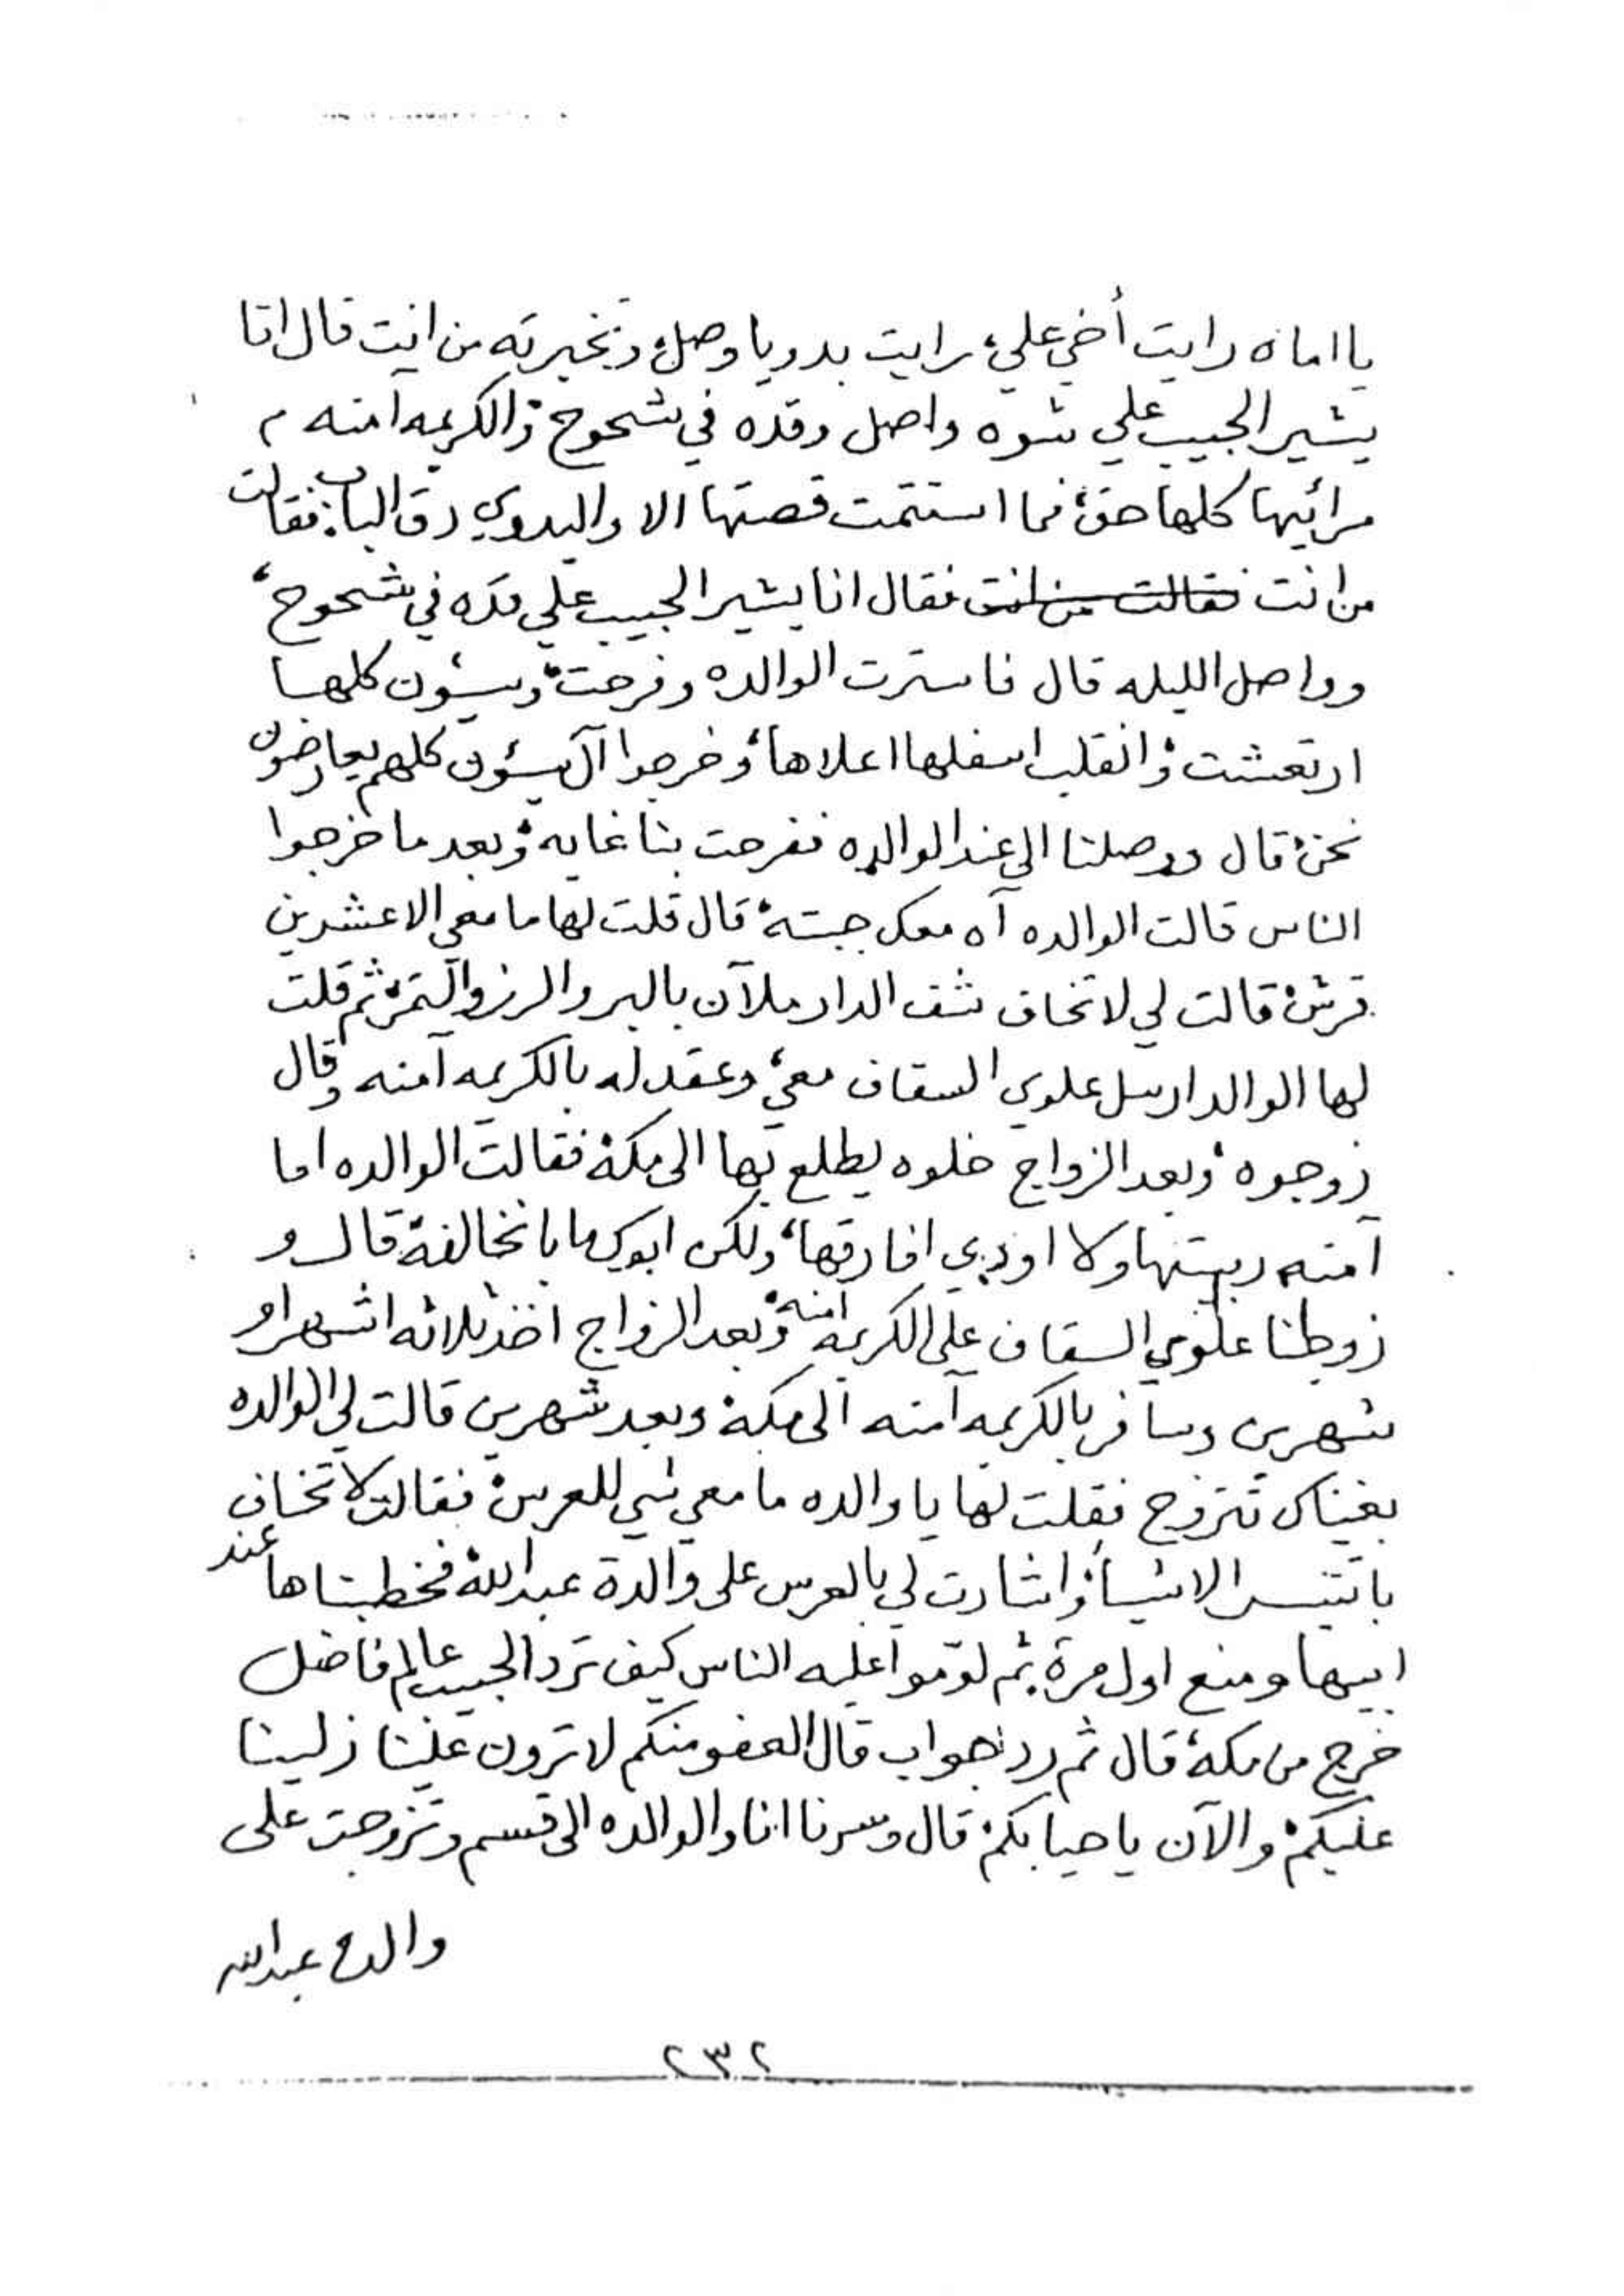 يا اماه رايت أخي علي، رايت بدويا وصل، وتخبرته من انت قال انا
بشير الحبيب علي شوه واصل وقده في شحوح، والكريمه آمنه م
مرائيها كلها حق، فما استتمت قصتها الا والبدوي دق الباب، فقالت
من انت فقالت من انت فقال انا بشير الحبيب علي قده في شحوح،
وواصل الليله قال فاسترت الوالده وفرحت، وسيئون كلها
ارتعشت، وانقلب اسفلها اعلاها، وخرجوا آل سيئون كلهم يعارضون
نحن، قال ووصلنا الى عند الوالده ففرحت بنا غايه، وبعد ما خرجوا
الناس قالت الوالده آه معك جبته، قال قلت لها ما معي الا عشرين
قرش، قالت لي لا تخاف شف الدار ملآن بالبر والرز والتمر، ثم قلت
لها الوالد ارسل علوي السقاف معي، وعقد له بالكريمه آمنه وقال
زوجوه، وبعد الزواج خلوه يطلع بها الى مكة، فقالت الوالده اما
آمنه ربيتها ولا اودي افارقها، ولكن ابوك ما با نخالفه، قال و
زوجنا علوي السقاف على الكريمه آمنه، وبعد الزواج اخذ ثلاثه اشهر او
شهرين وسافر بالكريمه آمنه الى مكة وبعد شهرين قالت لي الوالده
بغيناك تتزوج فقلت لها يا والده ما معي شي للعرس، فقالت لا تخاف
با تتيسر الاشيا، واشارت لي بالعرس على والدة عبدالله، فخطبناها عند
ابيها ومنع اول مرة، ثم لوّموا عليه الناس كيف ترد الحبيب عالم فاضل
خرج من مكة، قال ثم رد جواب قال العفو منكم لا ترون علينا زلينا
عليكم، والآن يا حيا بكم، قال وسرنا انا والوالده الى قسم وتزوجت على
والدة عبدالله
٢٣٢